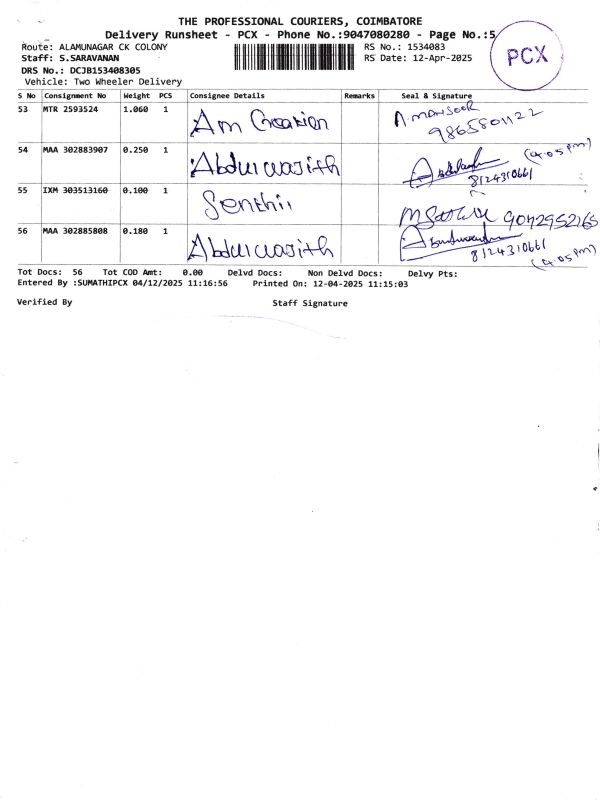 THE PROFESSIONAL COURIERS, COIMBATORE
Delivery Runsheet - PCX - Phone No.:9047080280 - Page No.:5
Route: ALAMUNAGAR CK COLONY RS No.: 1534083
Staff: S.SARAVANAN RS Date: 12-Apr-2025
DRS No.: DCJB153408305
Vehicle: Two Wheeler Delivery
PCX
S No Consignment No Weight PCS Consignee Details Remarks Seal & Signature
53 MTR 2593524 1.060 1 Am Creation A. MANSOOR
9865801122
54 MAA 302883907 0.250 1 Abdul wasith (4.05 pm)
8124310661
55 IXM 303513160 0.100 1 Senthil
M 9042952165
56 MAA 302885808 0.180 1 Abdul wasith
8124310661
(4.05 pm)
Tot Docs: 56 Tot COD Amt: 0.00 Delvd Docs: Non Delvd Docs: Delvy Pts:
Entered By :SUMATHIPCX 04/12/2025 11:16:56 Printed On: 12-04-2025 11:15:03
Verified By Staff Signature